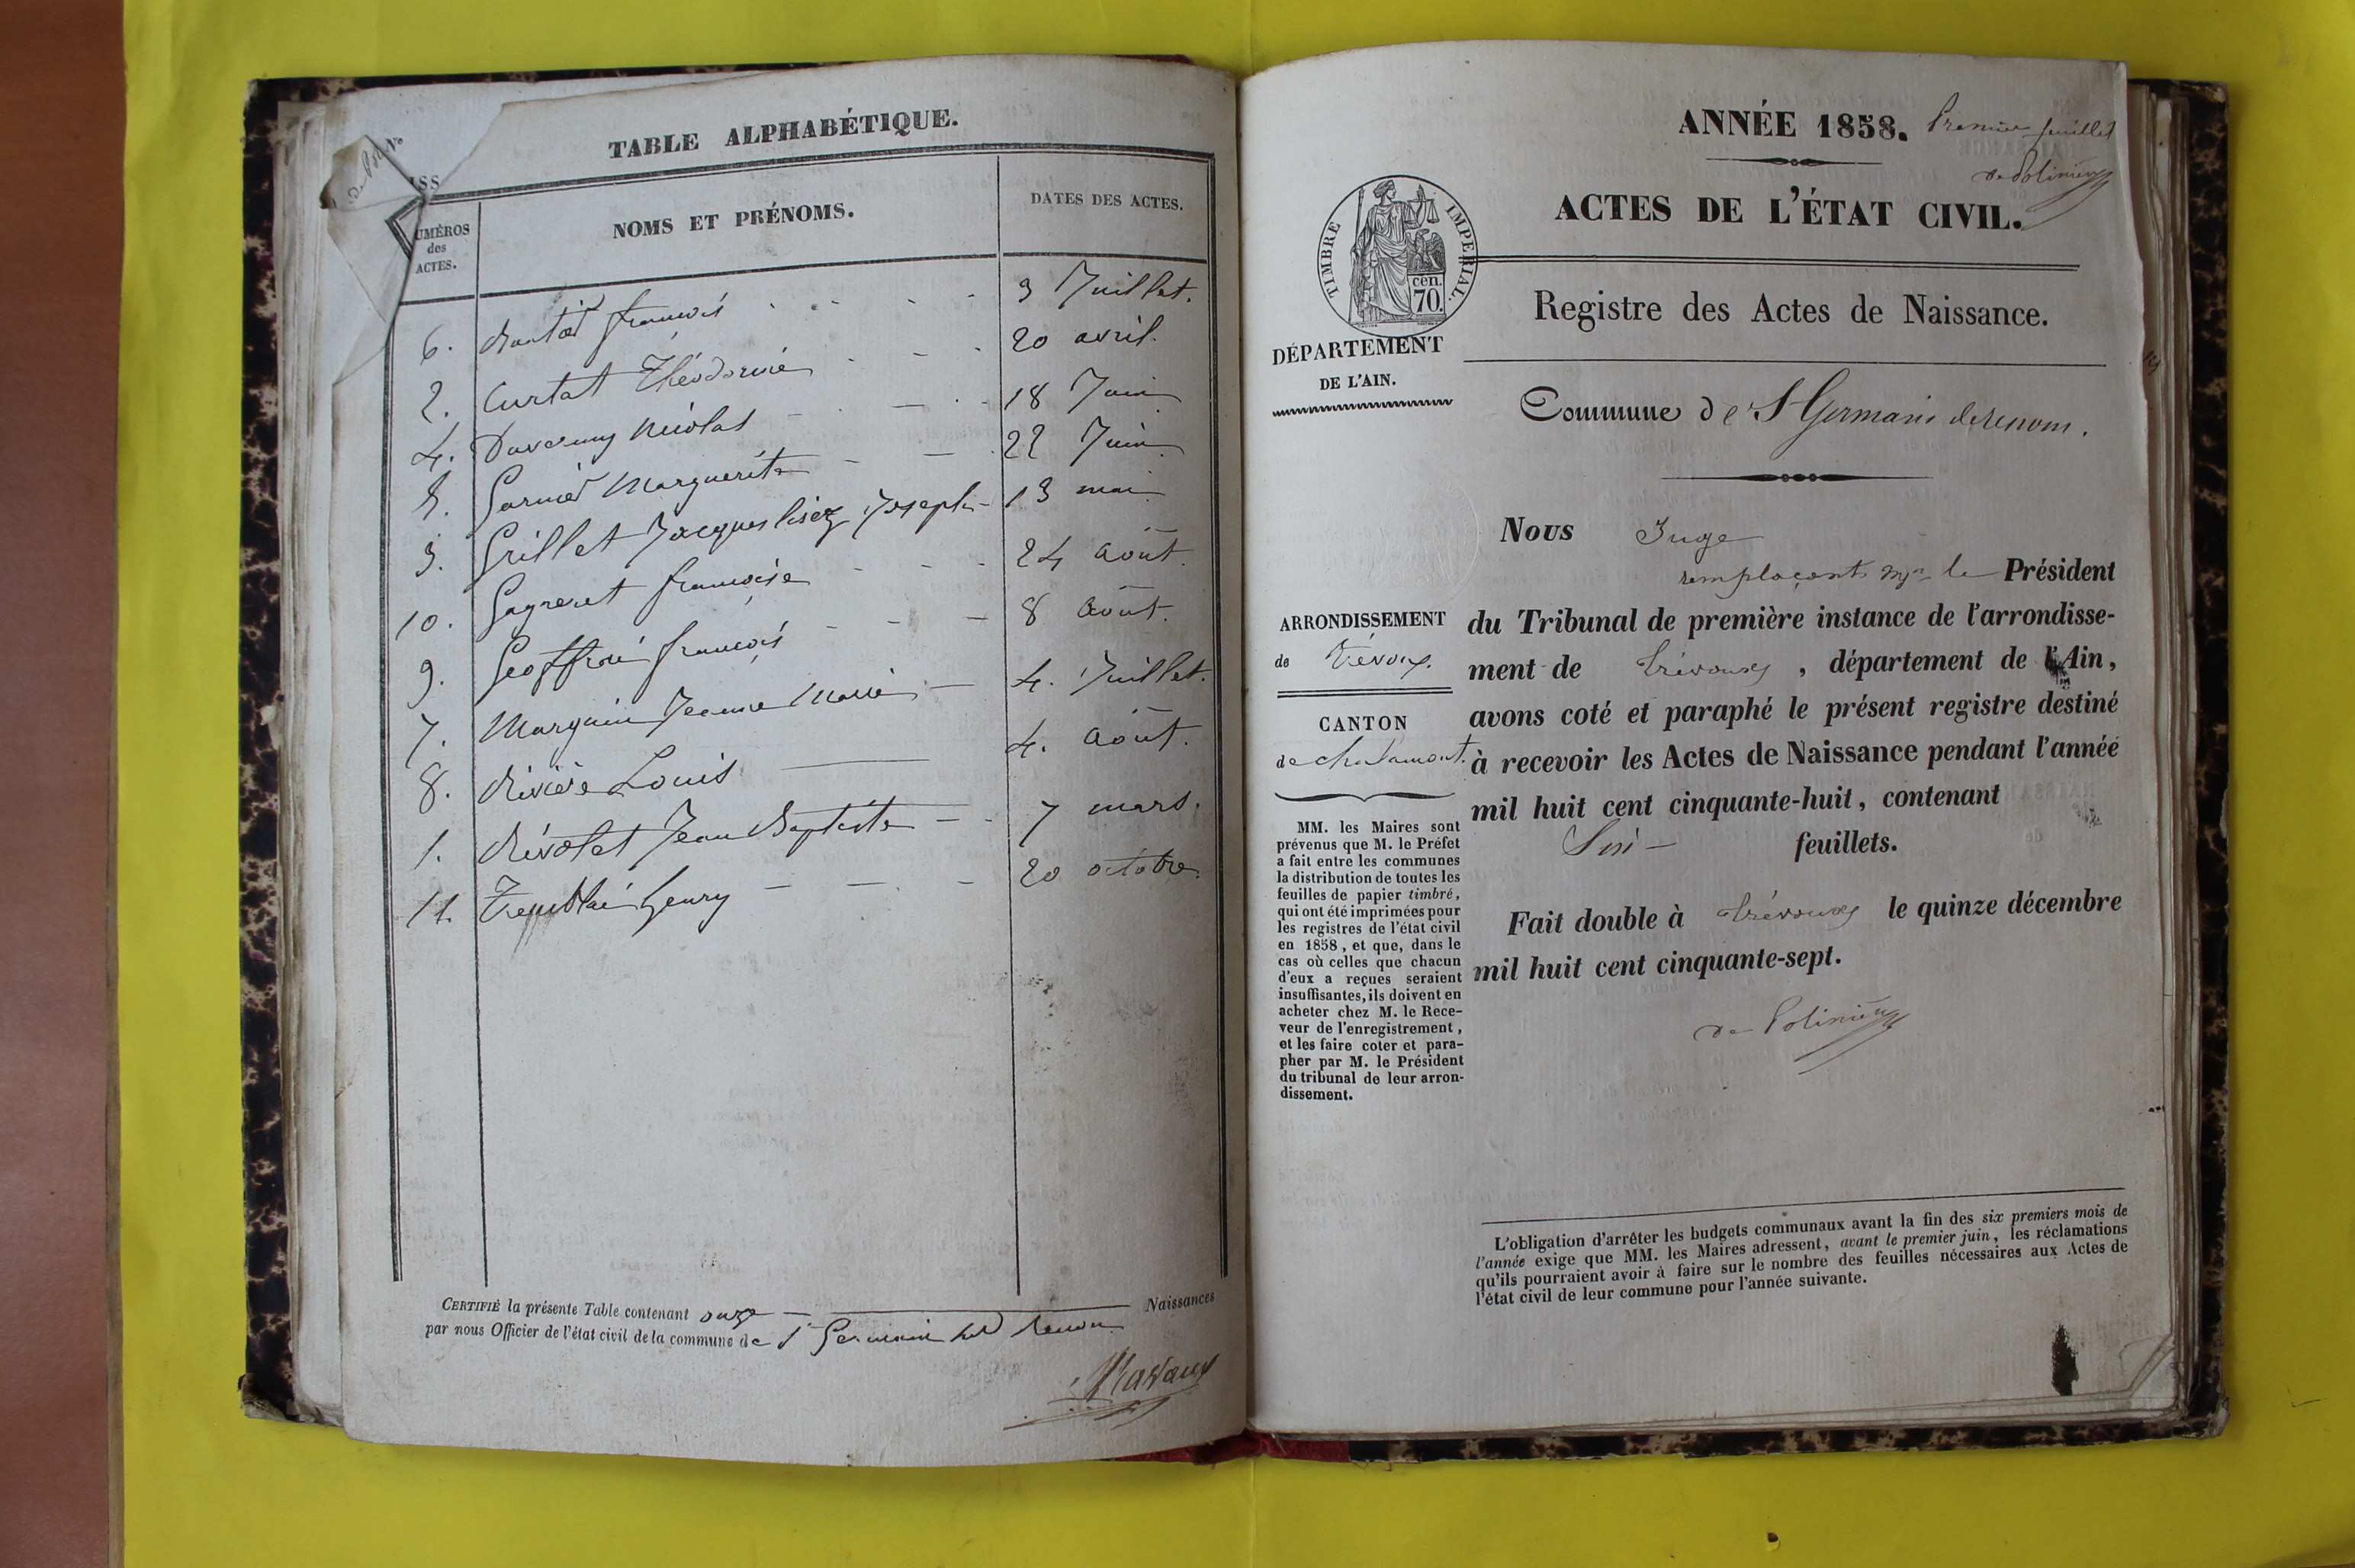 TABLE ALPHABÉTIQUE.
UMÉROS
des
ACTES.
NOMS ET PRÉNOMS.
DATES DES ACTES.
6. françois 3 Juillet.
2. Curtat Théodorine 20 avril.
4. nicolas 18 Juin
5. Garnier Marguerite 22 Juin
3. Grillet Jacques lisez Joseph 13 mai
10. Gagneret françoise 24 août.
9. Geoffroi françois 8 août.
7. Marguin Jeanne Marie 4. Juillet.
8. Rivière Louis 4. août.
1. Révolet Jean Baptiste 7 mars.
11. Tremblai henry 20 octobre.
CERTIFIÉ la présente Table contenant onze Naissances
par nous Officier de l'état civil de la commune de St Germain sur Renon
ANNÉE 1858. Premier feuillet
de Polinière
ACTES DE L'ÉTAT CIVIL.
TIMBRE IMPÉRIAL.
cen.
70.
Registre des Actes de Naissance.
DÉPARTEMENT
DE L'AIN.
Commune de St Germain derenom.
Nous Juge
remplaçant Mr le Président
du Tribunal de première instance de l'arrondisse-
ment de Trévoux, département de l'Ain,
avons coté et paraphé le présent registre destiné
à recevoir les Actes de Naissance pendant l'année
mil huit cent cinquante-huit, contenant
Six feuillets.
Fait double à Trévoux le quinze décembre
mil huit cent cinquante-sept.
de Polinière
ARRONDISSEMENT
de Trévoux.
CANTON
de chalamont.
MM. les Maires sont
prévenus que M. le Préfet
a fait entre les communes
la distribution de toutes les
feuilles de papier timbré,
qui ont été imprimées pour
les registres de l'état civil
en 1858, et que, dans le
cas où celles que chacun
d'eux a reçues seraient
insuffisantes, ils doivent en
acheter chez M. le Rece-
veur de l'enregistrement,
et les faire coter et para-
pher par M. le Président
du tribunal de leur arron-
dissement.
L'obligation d'arrêter les budgets communaux avant la fin des six premiers mois de
l'année exige que MM. les Maires adressent, avant le premier juin, les réclamations
qu'ils pourraient avoir à faire sur le nombre des feuilles nécessaires aux Actes de
l'état civil de leur commune pour l'année suivante.